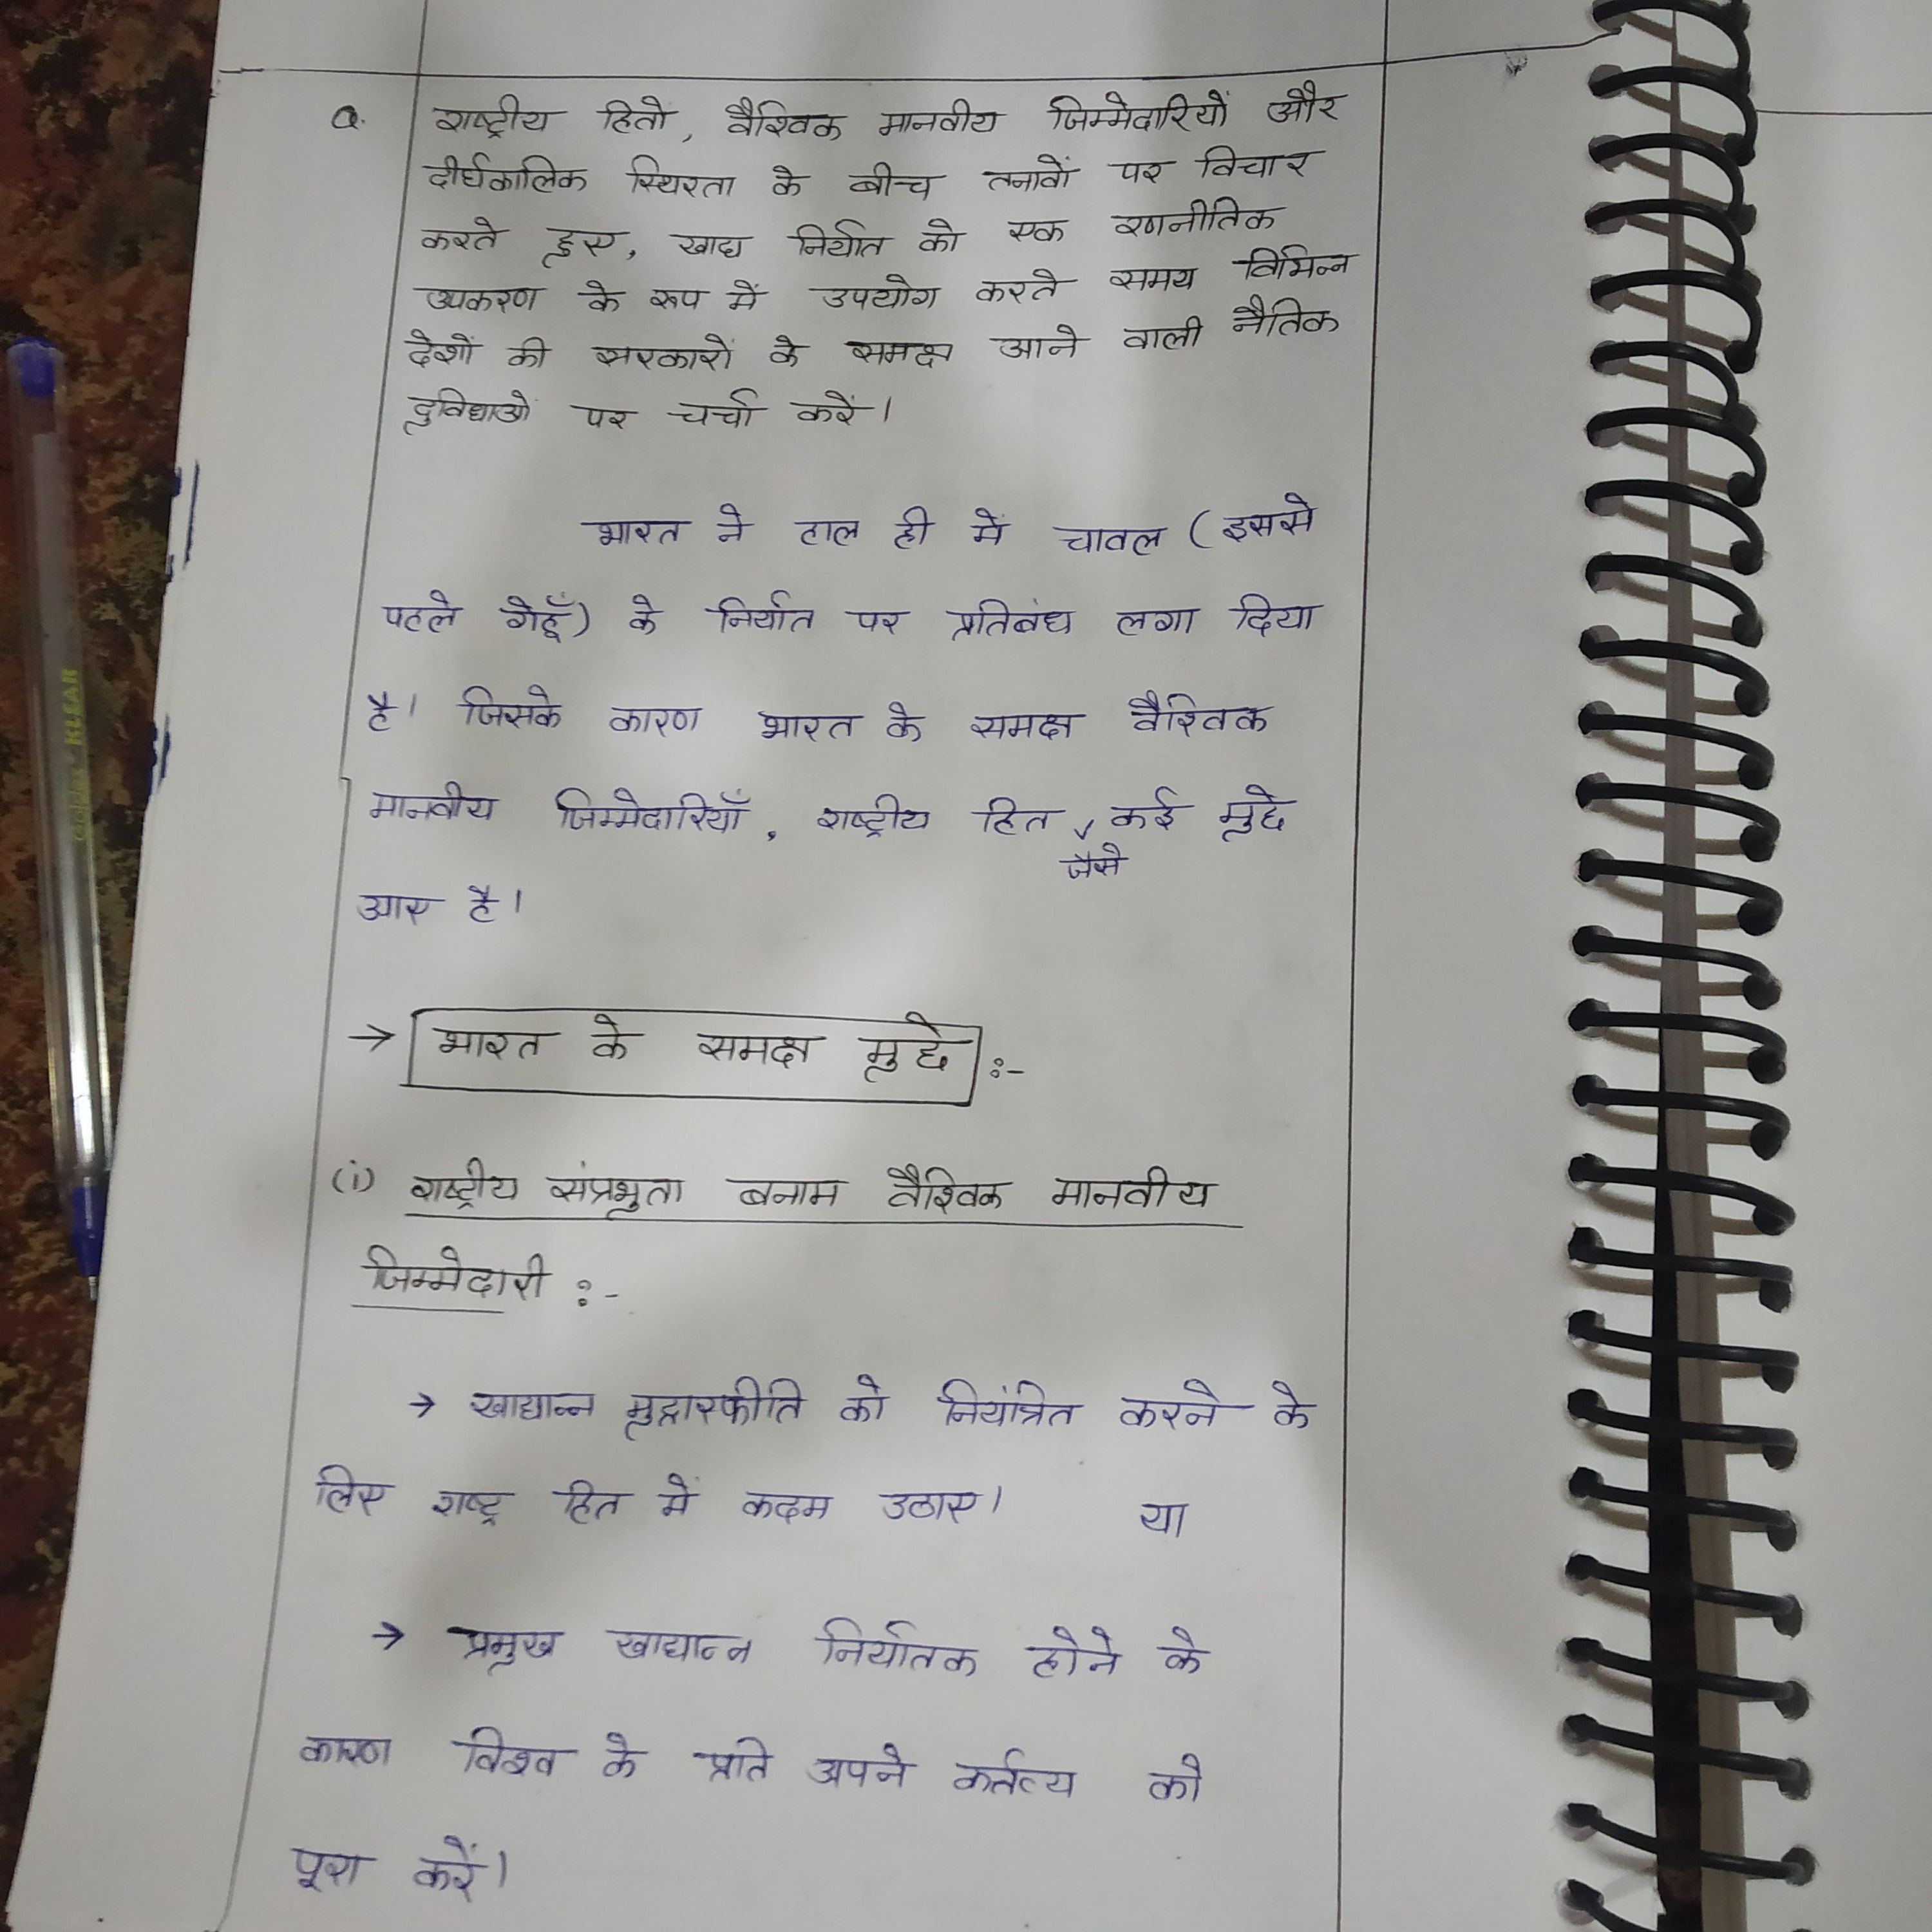 Q. राष्ट्रीय हितों, वैश्विक मानवीय जिम्मेदारियों और
दीर्घकालिक स्थिरता के बीच तनावों पर विचार
करते हुए, खाद्य निर्यात को एक रणनीतिक
उपकरण के रूप में उपयोग करते समय विभिन्न
देशों की सरकारों के समक्ष आने वाली नैतिक
दुविधाओं पर चर्चा करें।
भारत ने हाल ही में चावल (इससे
पहले गेहूँ) के निर्यात पर प्रतिबंध लगा दिया
है। जिसके कारण भारत के समक्ष वैश्विक
मानवीय जिम्मेदारियाँ, राष्ट्रीय हित जैसे कई मुद्दे
आए है।
→ भारत के समक्ष मुद्दे :-
(i) राष्ट्रीय संप्रभुता बनाम वैश्विक मानवीय
जिम्मेदारी :-
→ खाद्यान्न मुद्रास्फीति को नियंत्रित करने के
लिए राष्ट्र हित में कदम उठाए। या
→ प्रमुख खाद्यान्न निर्यातक होने के
कारण विश्व के प्रति अपने कर्तव्य को
पूरा करें।
KLEAR